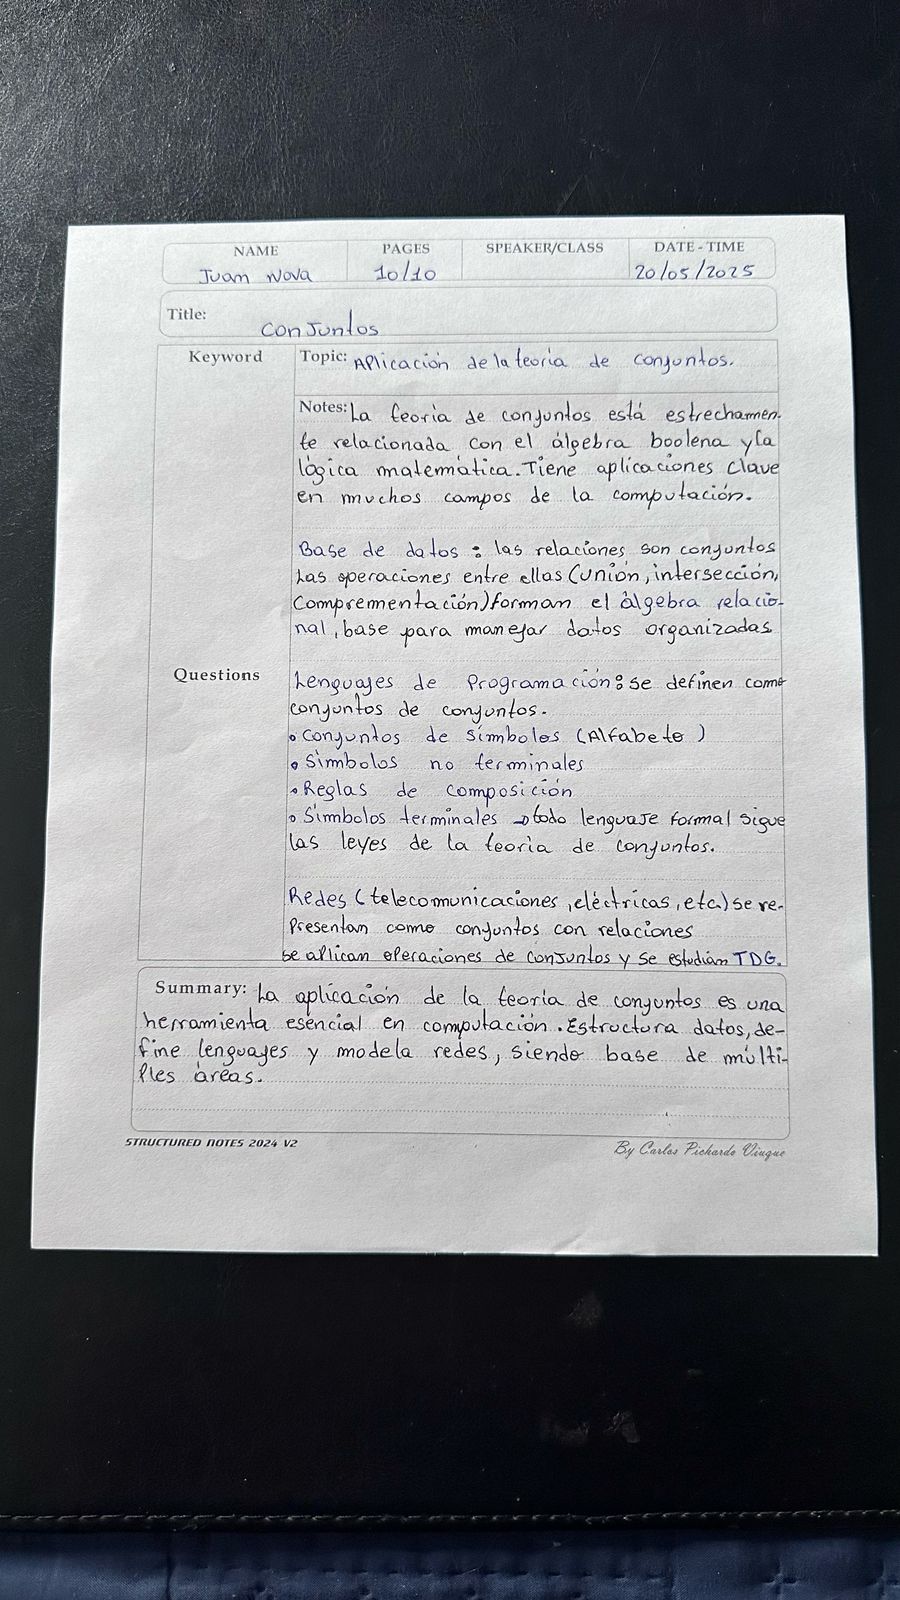 NAME PAGES SPEAKER/CLASS DATE - TIME
Juan Nova 10/10 20/05/2025
Title: Conjuntos
Keyword
Topic: Aplicación de la teoría de conjuntos.
Notes: La teoría de conjuntos está estrechamen-
te relacionada con el álgebra boolena y la
lógica matemática. Tiene aplicaciones clave
en muchos campos de la computación.
Base de datos: las relaciones son conjuntos
Las operaciones entre ellas (unión, intersección,
Comprementación) forman el álgebra relacio-
nal, base para manejar datos organizadas
Questions
Lenguajes de Programación: se definen como
conjuntos de conjuntos.
• Conjuntos de símbolos (Alfabeto)
• Símbolos no terminales
• Reglas de composición
• Símbolos terminales → todo lenguaje formal sigue
las leyes de la teoría de conjuntos.
Redes (telecomunicaciones, eléctricas, etc.) se re-
presentan como conjuntos con relaciones
se aplican operaciones de conjuntos y se estudian TDG.
Summary: La aplicación de la teoría de conjuntos es una
herramienta esencial en computación. Estructura datos, de-
fine lenguajes y modela redes, siendo base de múlti-
ples áreas.
STRUCTURED NOTES 2024 V2 By Carlos Pichardo Viuque